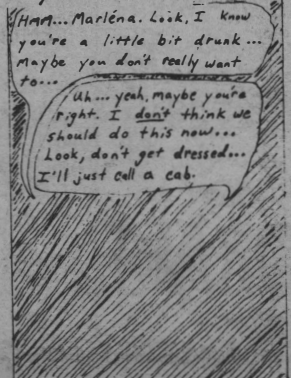 HMM... Marléna. Look, I know
you're a little bit drunk...
Maybe you don't really want
to...
Uh... yeah, maybe you're
right. I don't think we
should do this now...
Look, don't get dressed...
I'll just call a cab.